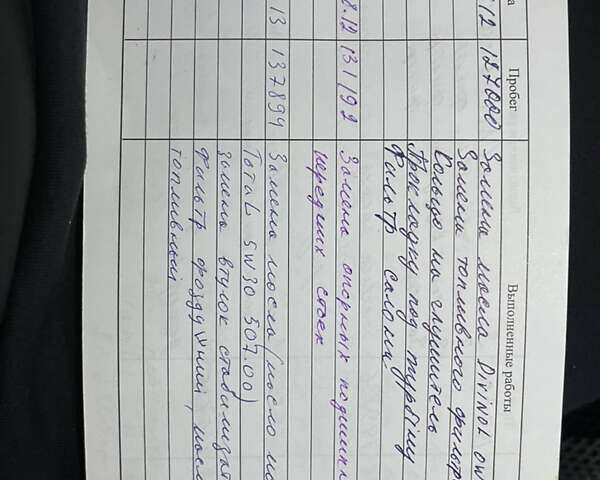 Пробег
Выполненные работы
12 127000 Замена масла Divinol
Замена топливного фильтр
Кольцо на глушитель
Прокладку под турбіну
Фильтр салона
8.12 131192 Замена опорных подшипн
передних стоек
13 137894 Замена масла (масло
Total 5W30 507.00)
замена втулок стабилизат
фильтр воздушний, масл
топливный